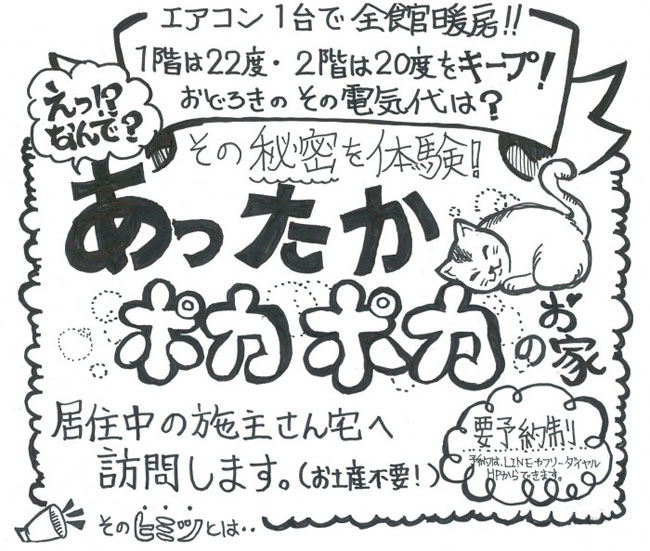 エアコン1台で全館暖房!!
1階は22度・2階は20度をキープ!
おどろきのその電気代は?
えっ!?
なんで?
その秘密を体験!
あったか
ポカポカ
のお家
居住中の施主さん宅へ
訪問します。(お土産不要!)
要予約制
予約は、LINEやフリーダイヤル
HPからできます。
そのヒミツとは・・